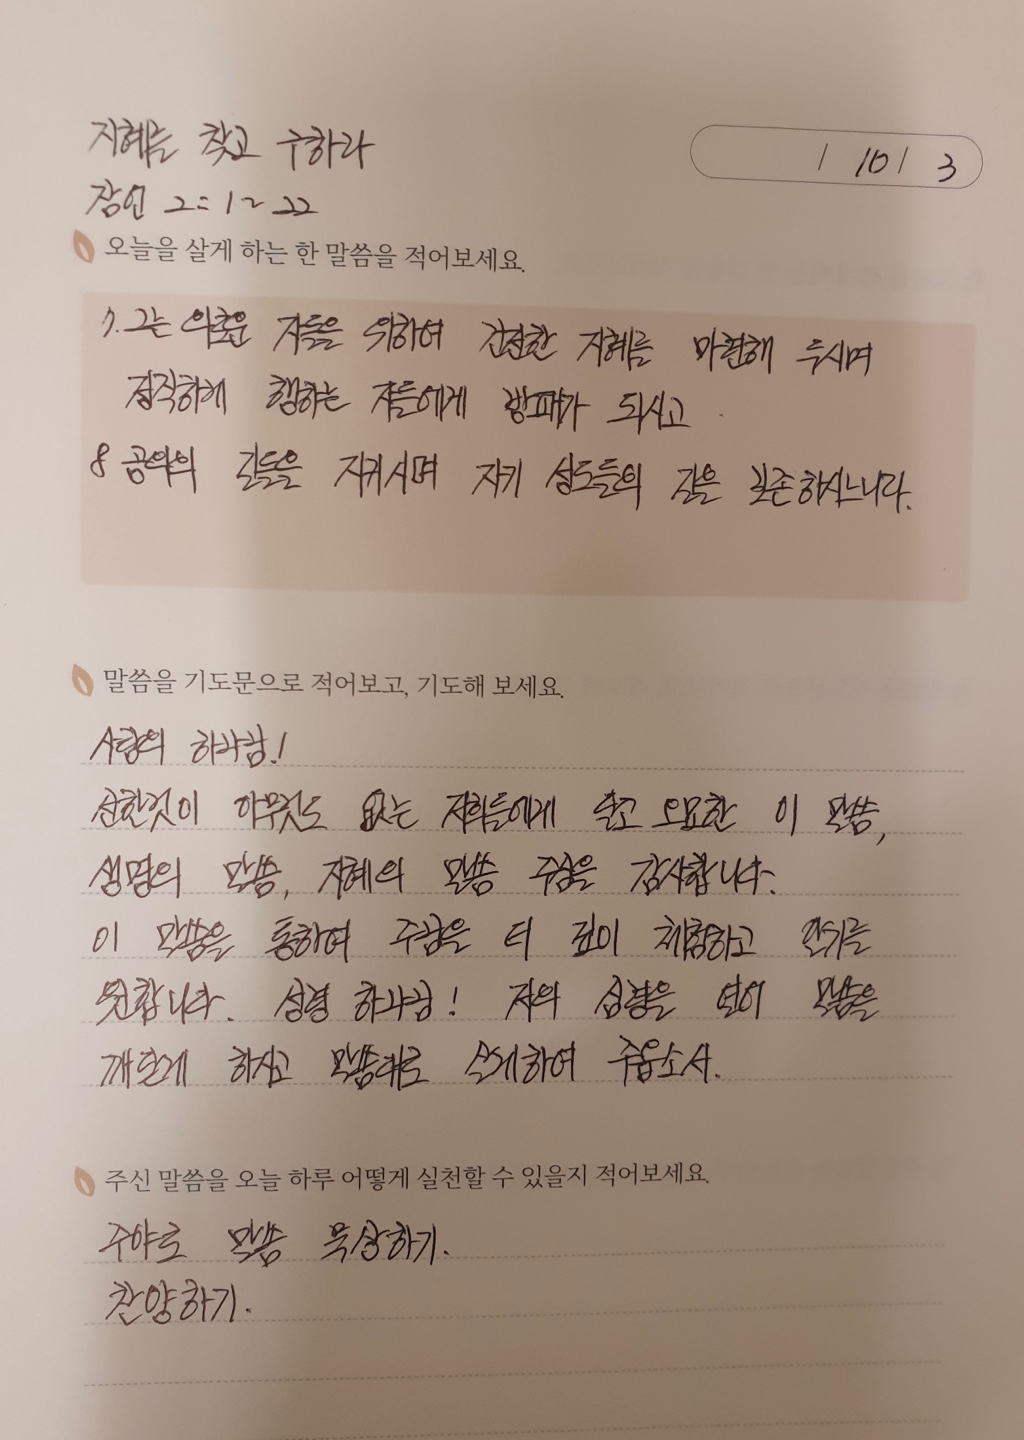 지혜를 찾고 구하라
/ 10 / 3
잠언 2:1~22
오늘을 살게 하는 한 말씀을 적어보세요.
7. 그는 의로운 자들을 위하여 건전한 지혜를 마련해 두시며
정직하게 행하는 자들에게 방패가 되시고
8 공의의 길들을 지키시며 자기 성도들의 길을 보존하시느니라.
말씀을 기도문으로 적어보고, 기도해 보세요.
사랑의 하나님!
선한것이 아무것도 없는 저희들에게 달고 오묘한 이 말씀,
생명의 말씀, 지혜의 말씀 주심을 감사합니다.
이 말씀을 통하여 주님을 더 깊이 체험하고 알기를
원합니다. 성령 하나님! 저의 심령을 열어 말씀을
깨닫게 하시고 말씀대로 살게하여 주옵소서.
주신 말씀을 오늘 하루 어떻게 실천할 수 있을지 적어보세요.
주야로 말씀 묵상하기.
찬양하기.